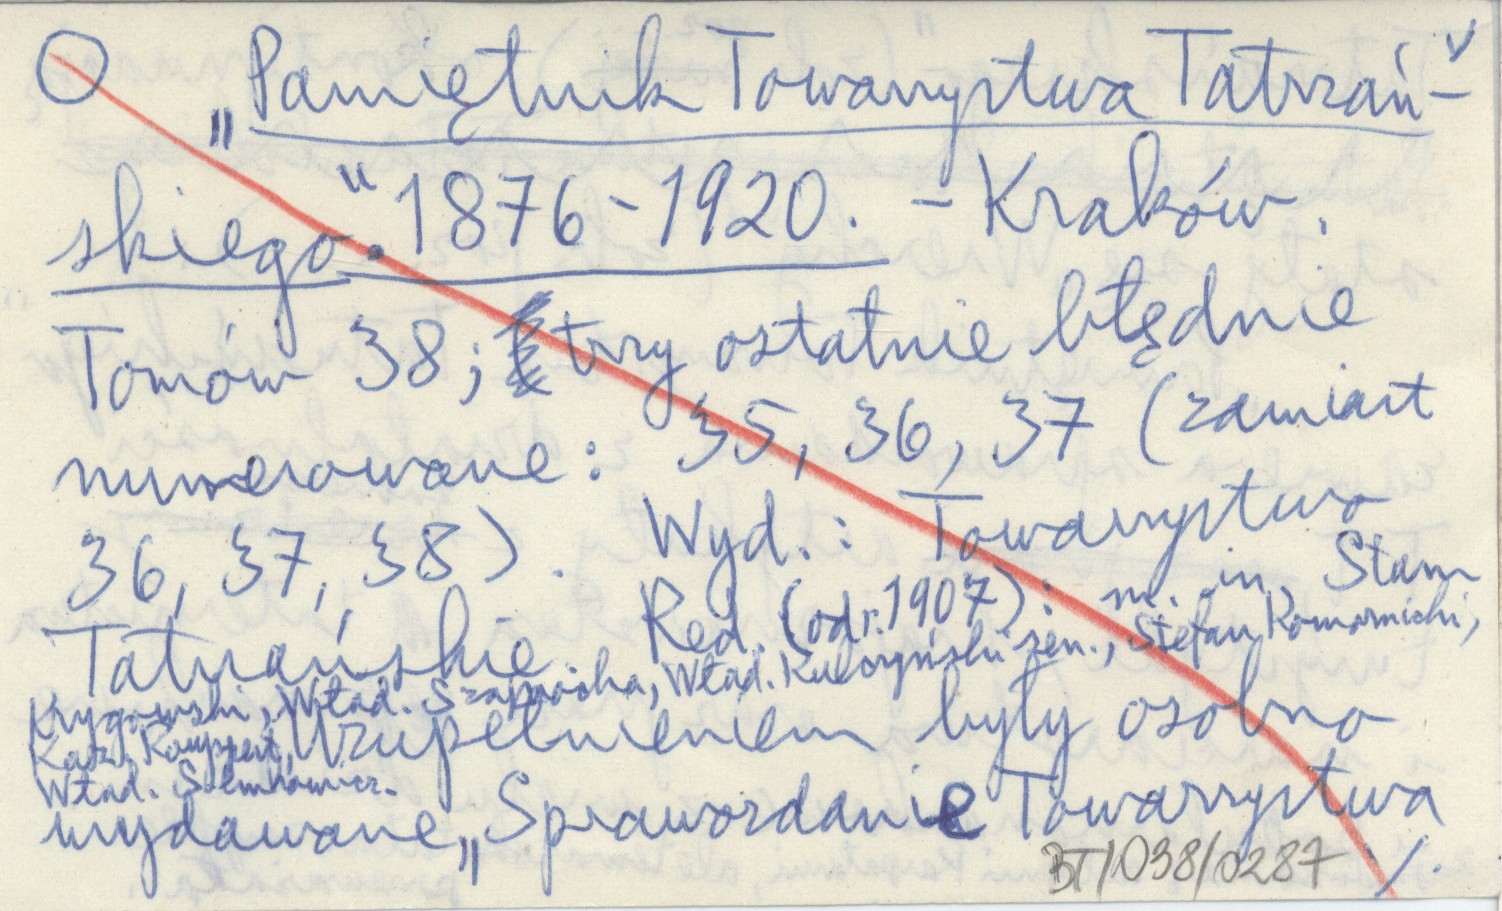 „Pamiętnik Towarzystwa Tatrzań-
skiego". 1876-1920. - Kraków.
Tomów 38; trzy ostatnie błędnie
numerowane: 35, 36, 37 (zamiast
36, 37, 38). Wyd.: Towarzystwo
Tatrzańskie. Red. (od r. 1907): m. in. Stan.
Krygowski, Wład. Szajnocha, Wład. Kulczyński sen., Stefan Komornicki,
Kaz. Rouppert,
Wład. Semkowicz.
Uzupełnieniem były osobno
wydawane „Sprawozdanie Towarzystwa
BT/038/0287 /.